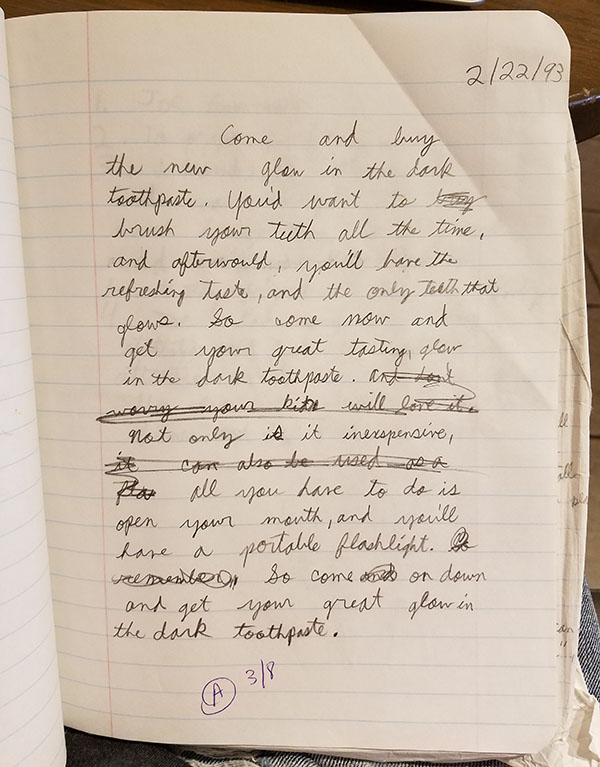 2/22/93
Come and buy
the new glow in the dark
toothpaste. You'd want to buy
brush your teeth all the time,
and afterwould, you'll have the
refreshing taste, and the only teeth that
glows. So come now and
get your great tasting, glow
in the dark toothpaste. and don't
worry your kids will love it.
Not only is it inexpensive,
it can also be used as a
all you have to do is
open your mouth, and you'll
have a portable flashlight. So
remember, So come and on down
and get your great glow in
the dark toothpaste.
A 3/8